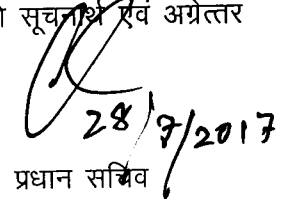 सूचनार्थ एवं अग्रेत्तर
28/7/2017
प्रधान सचिव